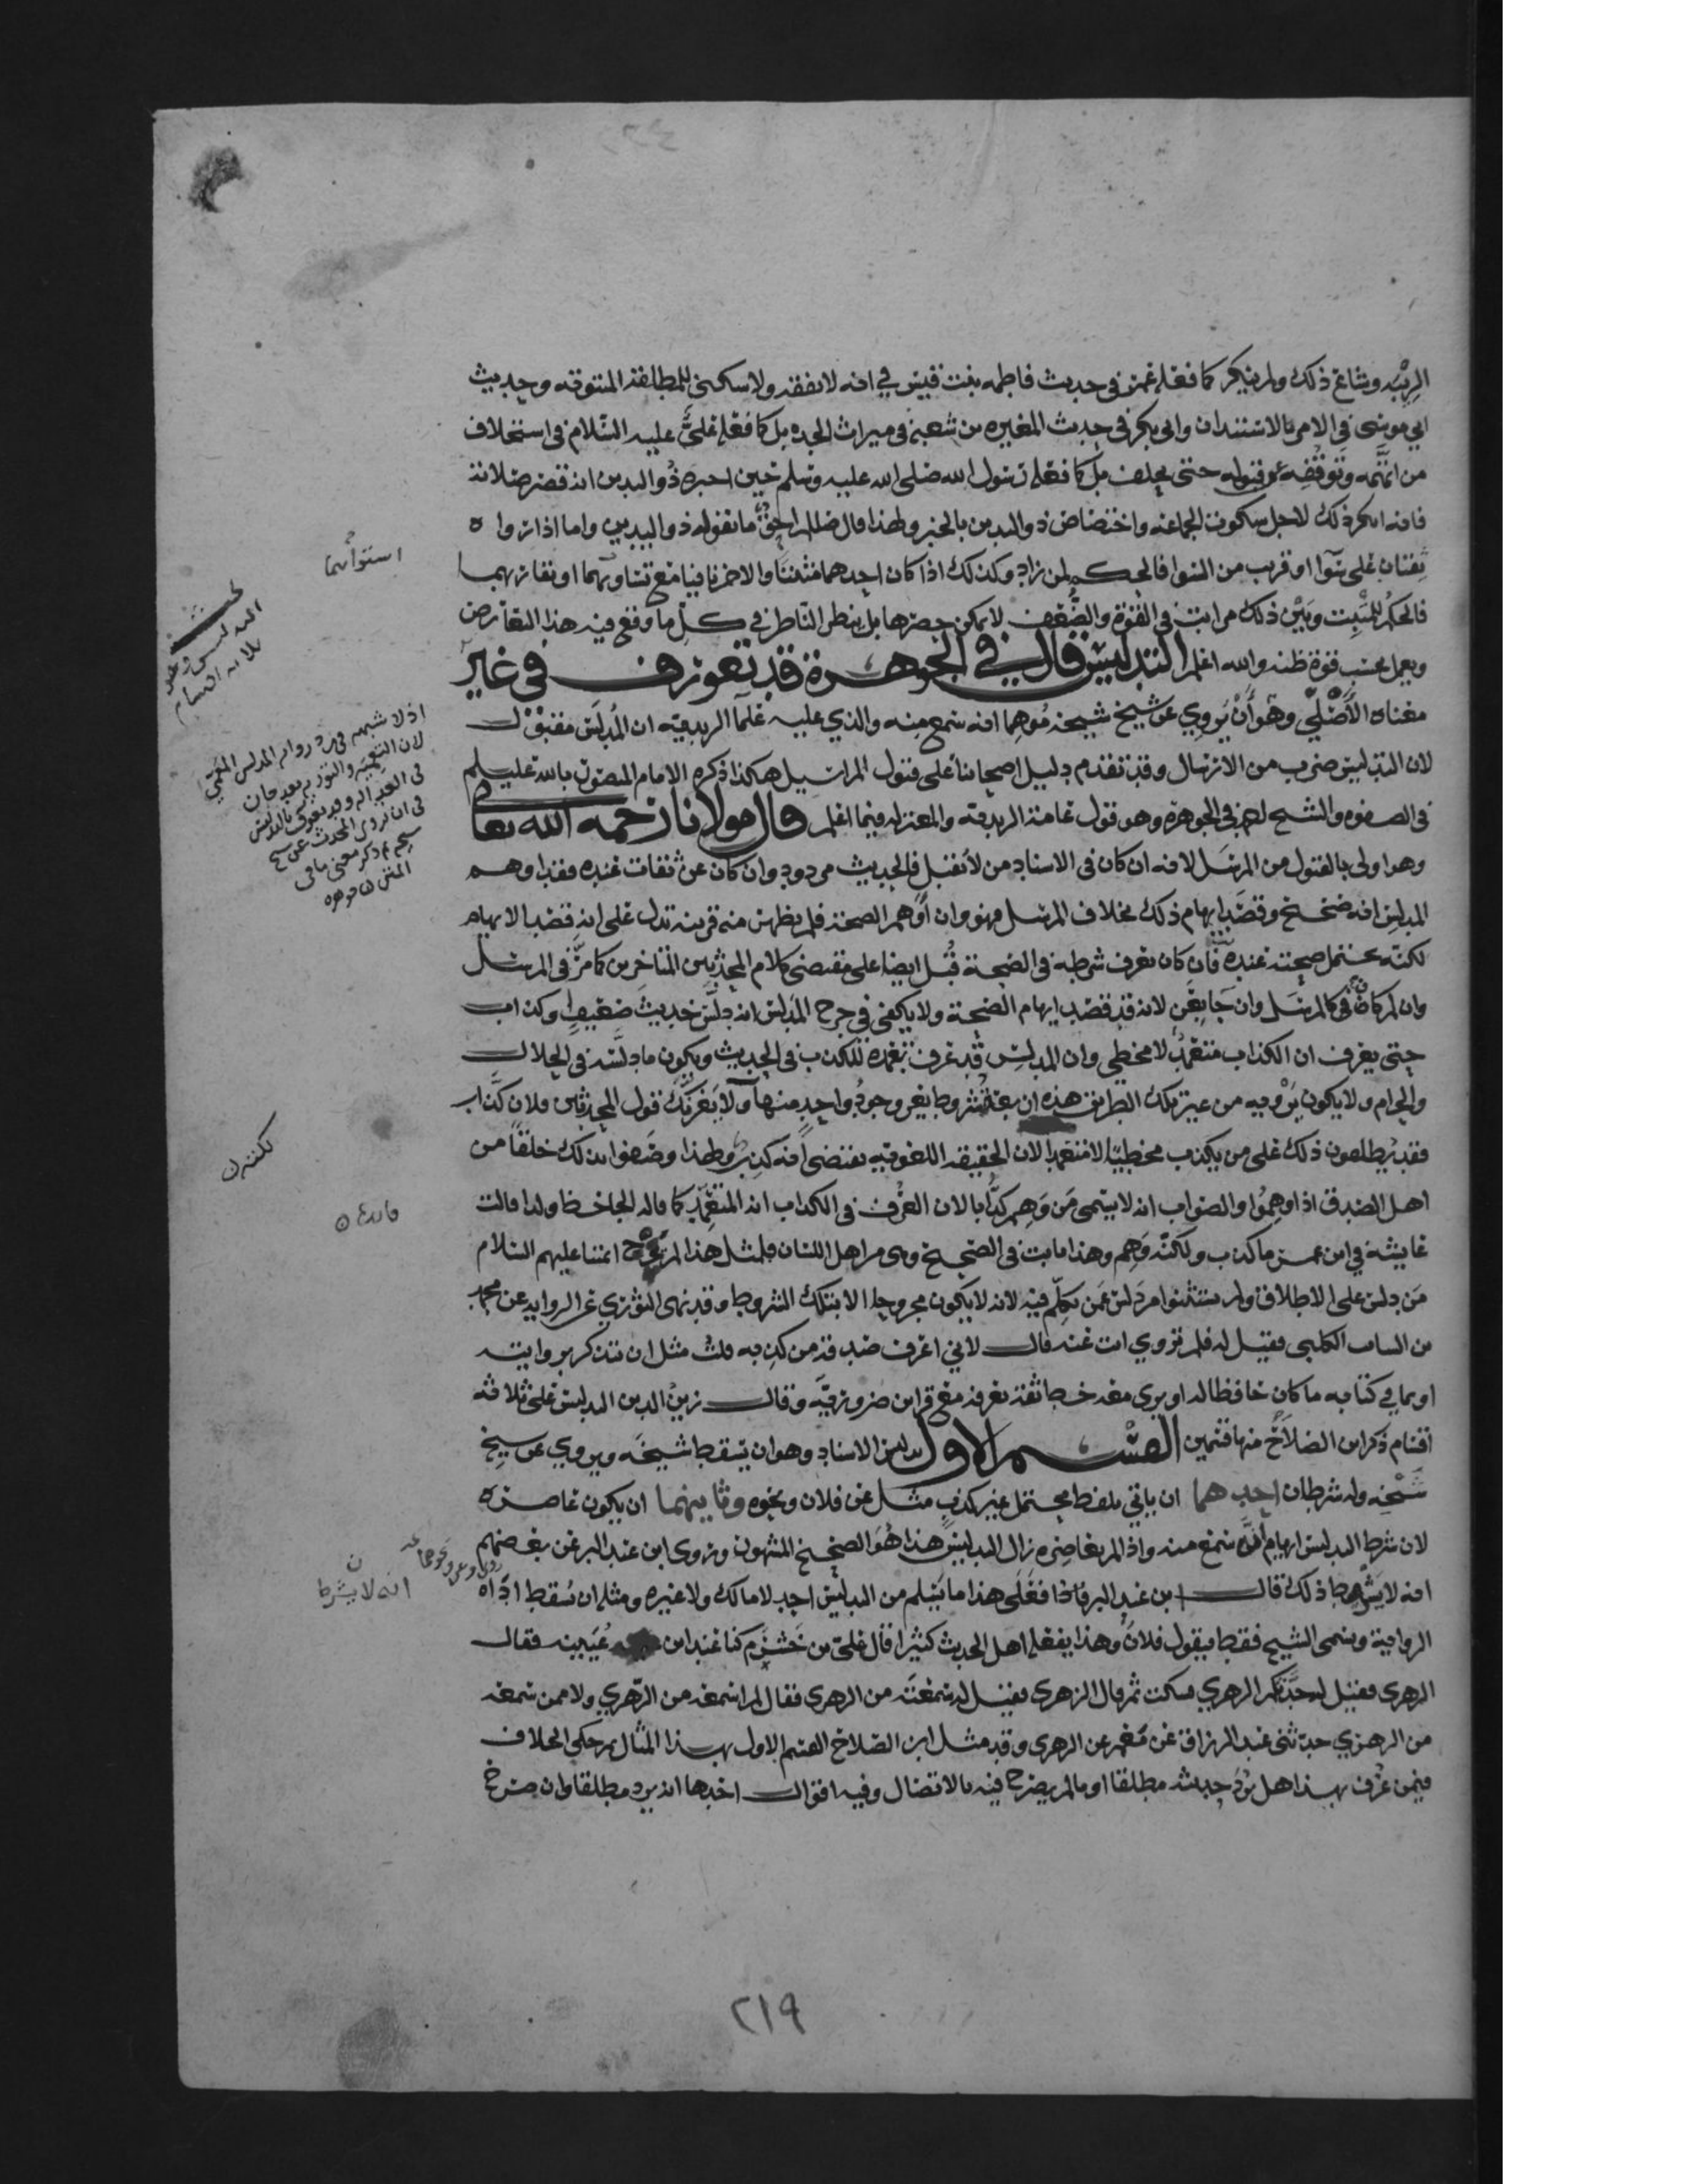 الريبه وشاع ذلك ولم ينكر كما فعله عمر في حديث فاطمه بنت قيس في انه لا نفقه ولا سكنى للمطلقه المبتوته وحديث
ابي موسى في الامر بالاستئذان وابي بكر في حديث المغيره بن شعبة في ميراث الجده بل كما فعله علي عليه السلام في استحلاف
من اتهمه وتوقفه عن قبوله حتى يحلف بل كما فعله رسول الله صلى الله عليه وسلم حين اخبره ذو اليدين انه قصر صلاته
فانه انكر ذلك لاجل سكوت الجماعه واختصاص ذو اليدين بالخبر ولهذا قال صللم احق ما يقوله ذو اليدين واما اذا رواه
ثقتان على سوا او قريب من السوا فالحكم لمن زاد وكذلك اذا كان احدهما مثبتا والاخر نافيا مع تساويهما او تقاربهما
فالحكم للمثبت وبين ذلك مراتب في القوة والضعف لا يمكن حصرها بل ينظر الناظر في كل ما وقع فيه هذا التعارض
ويعمل بحسب قوة ظنه والله اعلم التدليس قال في الجوهرة قد تعورف في غير
معناه الأصلي وهو أن يروي عن شيخ شيخه موهما انه سمع منه والذي عليه علما الزيديه ان المدلس مقبول
لان التدليس ضرب من الارسال وقد تقدم دليل اصحابنا على قبول المراسيل هكذا ذكره الامام المنصور بالله عليلم
في الصفوه والشيخ احمد في الجوهرة وهو قول عامة الزيديه والمعتزله فيما اعلم قال مولانا رحمه الله تعالى
وهو اولى بالقبول من المرسل لانه ان كان في الاسناد من لا يقبل فالحديث مردود وان كان عن ثقات عنده فقد اوهم
المدلس انه صحيح وقصد ايهام ذلك بخلاف المرسل فهو وان أوهم الصحة فلم يظهر منه قرينه تدل على انه قصد الايهام
لكنه يحتمل صحته عنده فان كان يعرف شرطه في الصحة قبل ايضا على مقتضى كلام المحدثين المتاخرين كما مر في المرسل
وان لم كان كالمرسل وان جا بعن لانه قد قصد ايهام الصحة ولا يكفي في جرح المدلس انه دلس حديث ضعيف وكذاب
حتى يعرف ان الكذاب متعمد لا مخطي وان المدلس قد عرف تعمده للكذب في الحديث ويكون ما دلسه في الحلال
والحرام ولا يكون يرويه من غير تلك الطريق هذه اربعة شروط يعز وجود واحد منها ولا يغرنك قول المحدثين فلان كذاب
فقد يطلقون ذلك على من يكذب مخطيا لا متعمدا لان الحقيقه اللغويه تقتضي انه كذب ولهذا وصفوا بذلك خلقا من
اهل الصدق اذا وهموا والصواب انه لا يسمى من وهم كذابا لان العرف في الكذاب انه المتعمد كما قاله الجاحظ ولذا قالت
عايشة في ابن عمر ما كذب ولكنه وهم وهذا ثابت في الصحيح وهي من اهل اللسان فلمثل هذا لم يجرح ائمتنا عليهم السلام
من دلس على الاطلاق ولم يستثنوا من دلس عمن تكلم فيه لانه لا يكون مجروحا الا بتلك الشروط وقد نهى الثوري عن الروايه عن محمد
بن السائب الكلبي فقيل له فلم تروي انت عنه قال لاني اعرف صدقه من كذبه قلت مثل ان يتذكر بروايته
او بما في كتابه ما كان حافظا له او يرى معه خط ثقة يعرفه مع قراين ضروريه وقال زين الدين التدليس على ثلاثه
اقسام ذكر ابن الصلاح منها قسمين القسم الاول تدليس الاسناد وهو ان يسقط شيخه ويروي عن شيخ
شيخه وله شرطان احدهما ان ياتي بلفظ محتمل غير كذب مثل عن فلان ونحوه وثانيهما ان يكون عاصره
لان شرط التدليس ايهام انه سمع منه واذا لم يعاصره زال التدليس هذا هو الصحيح المشهور وروى ابن عبد البر عن بعضهم
انه لا يشترط ذلك قال ابن عبد البر فاذا فعلى هذا ما يسلم من التدليس احد لا مالك ولا غيره ومثله ان يسقط اداه
الرواية ويسمى الشيخ فقط فيقول فلان وهذا يفعله اهل الحديث كثيرا قال علي بن خشرم كنا عند ابن عيينه فقال
الزهري فقيل له حدثكم الزهري فسكت ثم قال الزهري فقيل له سمعته من الزهري فقال لم اسمعه من الزهري ولا ممن سمعه
من الزهري حدثني عبد الرزاق عن معمر عن الزهري وقد مثل ابن الصلاح القسم الاول بهذا المثال ثم حكى الخلاف
فيمن عرف بهذا هل يرد حديثه مطلقا او ما لم يصرح فيه بالاتصال وفيه اقوال احدها انه يرد مطلقا وان صرح
استوائهما
التدليس وهو
ثلاثه اقسام
اذ لا شبهه في رد روايه المدلس
المتن من جوهره
انه لا يشترط
٢١٩